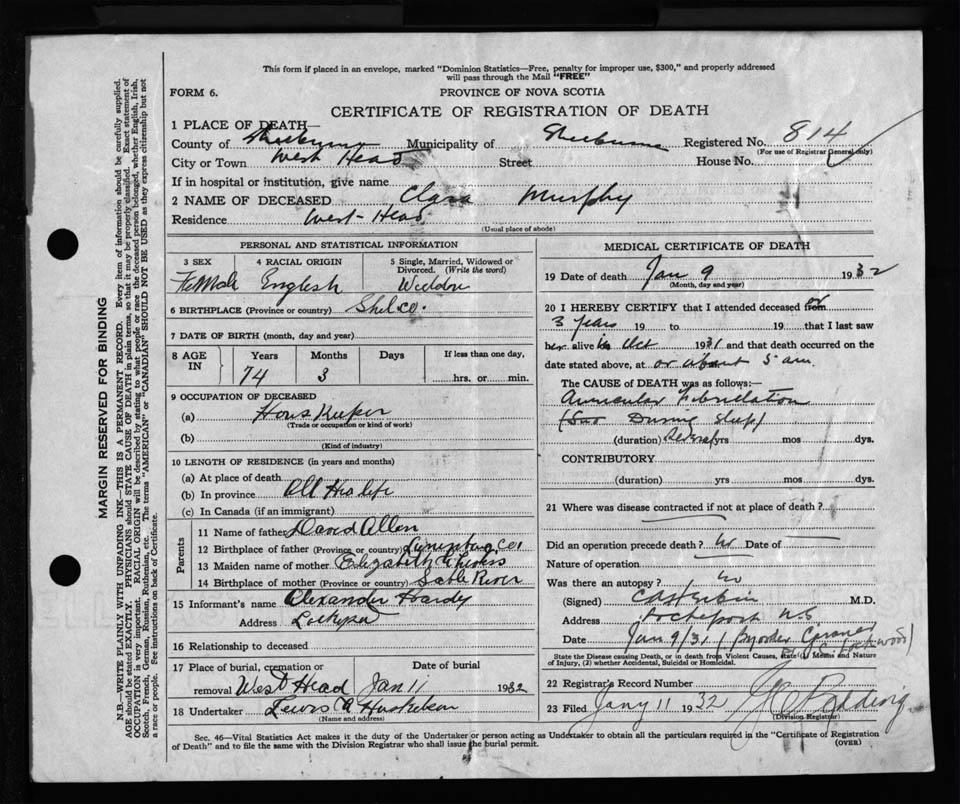 This form if placed in an envelope, marked "Dominion Statistics—Free, penalty for improper use, $300," and properly addressed
will pass through the Mail "FREE"
FORM 6.
PROVINCE OF NOVA SCOTIA
CERTIFICATE OF REGISTRATION OF DEATH
1 PLACE OF DEATH—
County of Shelburne Municipality of Shelburne Registered No. 814
(For use of Registrar General only)
City or Town West Head Street House No.
If in hospital or institution, give name
2 NAME OF DECEASED Clara Murphy
Residence West-Head
(Usual place of abode)
PERSONAL AND STATISTICAL INFORMATION
3 SEX 4 RACIAL ORIGIN 5 Single, Married, Widowed or Divorced. (Write the word)
FeMale English Widdow
6 BIRTHPLACE (Province or country) Shel Co.
7 DATE OF BIRTH (month, day and year)
8 AGE IN Years Months Days If less than one day,
74 3 hrs. or min.
9 OCCUPATION OF DECEASED
(a) Hous Keeper
(Trade or occupation or kind of work)
(b)
(Kind of industry)
10 LENGTH OF RESIDENCE (in years and months)
(a) At place of death
(b) In province All His life
(c) In Canada (if an immigrant)
Parents
11 Name of father David Allen
12 Birthplace of father (Province or country) Lunenburg Co.
13 Maiden name of mother Elizabeth
14 Birthplace of mother (Province or country) Sable River
15 Informant's name Alexander Hardy
Address Lockeport
16 Relationship to deceased
17 Place of burial, cremation or removal West Head Date of burial Jan 11 1932
18 Undertaker Lewis A Huskilson
(Name and address)
MEDICAL CERTIFICATE OF DEATH
19 Date of death Jan 9 1932
(Month, day and year)
20 I HEREBY CERTIFY that I attended deceased from or
3 years 19 to 19 that I last saw
her alive in Oct 1931 and that death occurred on the
date stated above, at or about 5 am.
The CAUSE of DEATH was as follows:—
Auricular Fibrillation
( During sleep)
(duration) Several yrs mos dys.
CONTRIBUTORY
(duration) yrs mos dys.
21 Where was disease contracted if not at place of death?
Did an operation precede death? No Date of
Nature of operation
Was there an autopsy? No
(Signed) M.D.
Address Lockeport N.S
Date Jan 9/31 (By order Coroner Lockwood)
State the Disease causing Death, or in death from Violent Causes, state (1) Means and Nature
of Injury, (2) whether Accidental, Suicidal or Homicidal.
22 Registrar's Record Number
23 Filed Jany 11 1932
(Division Registrar)
Sec. 46—Vital Statistics Act makes it the duty of the Undertaker or person acting as Undertaker to obtain all the particulars required in the "Certificate of Registration
of Death" and to file the same with the Division Registrar who shall issue the burial permit.
(OVER)
MARGIN RESERVED FOR BINDING
N.B.—WRITE PLAINLY WITH UNFADING INK—THIS IS A PERMANENT RECORD. Every item of information should be carefully supplied.
AGE should be stated EXACTLY. PHYSICIANS should STATE CAUSE OF DEATH in plain terms, so that it may be properly classified. Exact statement of
OCCUPATION is very important. RACIAL ORIGIN will be described by stating to what people or race the deceased person belonged, whether English, Irish,
Scotch, French, German, Russian, Ruthenian, etc. The terms "AMERICAN" or "CANADIAN" SHOULD NOT BE USED as they express citizenship but not
a race or people. See instructions on back of Certificate.